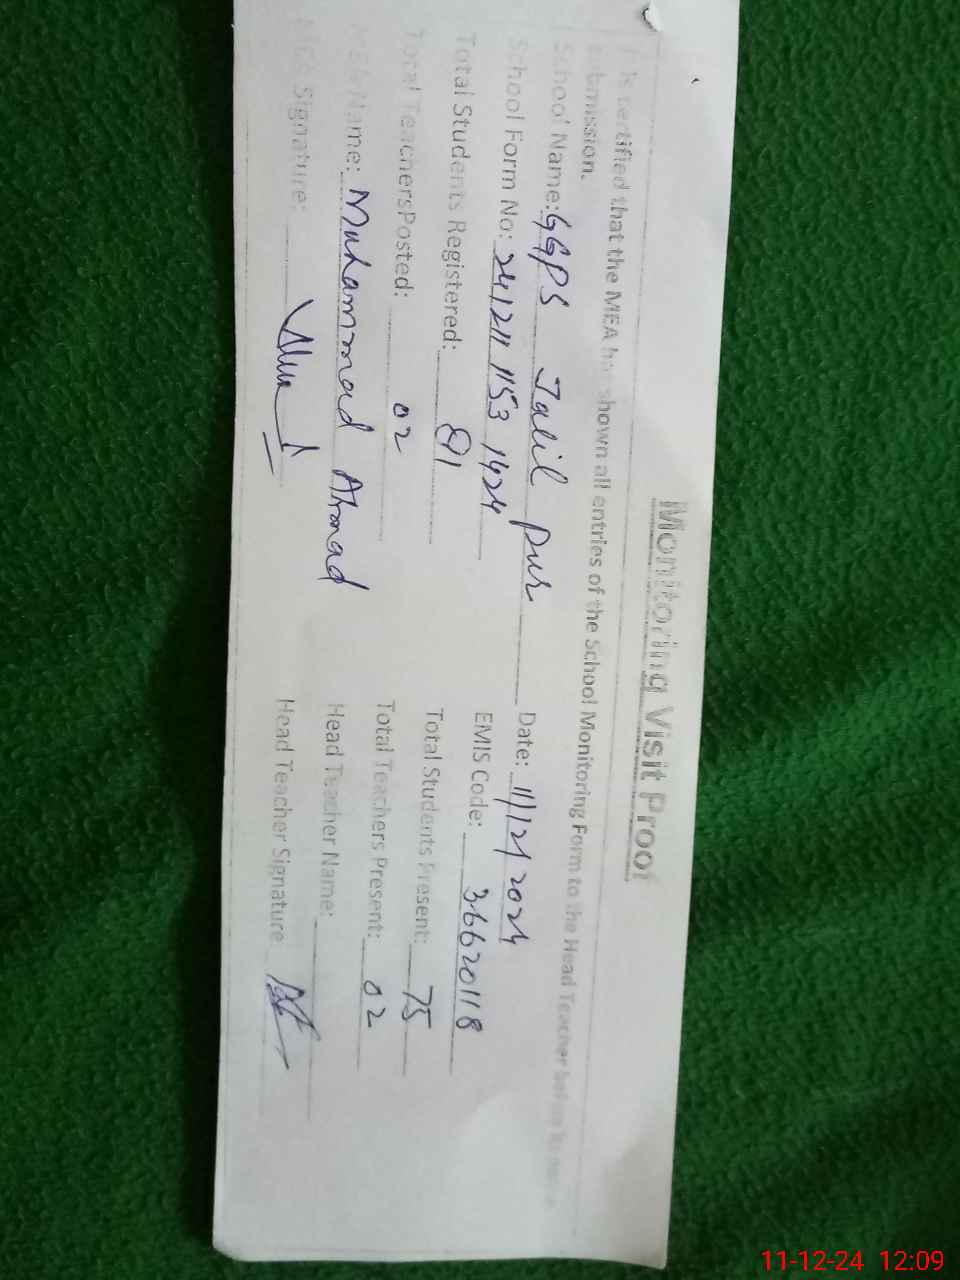 Monitoring Visit Proof
is certified that the MEA has shown all entries of the School Monitoring Form to the Head Teacher before
submission.
School Name: GGPS Jalil Pur Date: 11/12/2024
School Form No: 241211 1153 1424 EMIS Code: 36620118
Total Students Registered: 81 Total Students Present: 75
Total TeachersPosted: 02 Total Teachers Present: 02
Name: Muhammad Ahmad Head Teacher Name:
Signature: Head Teacher Signature
11-12-24 12:09